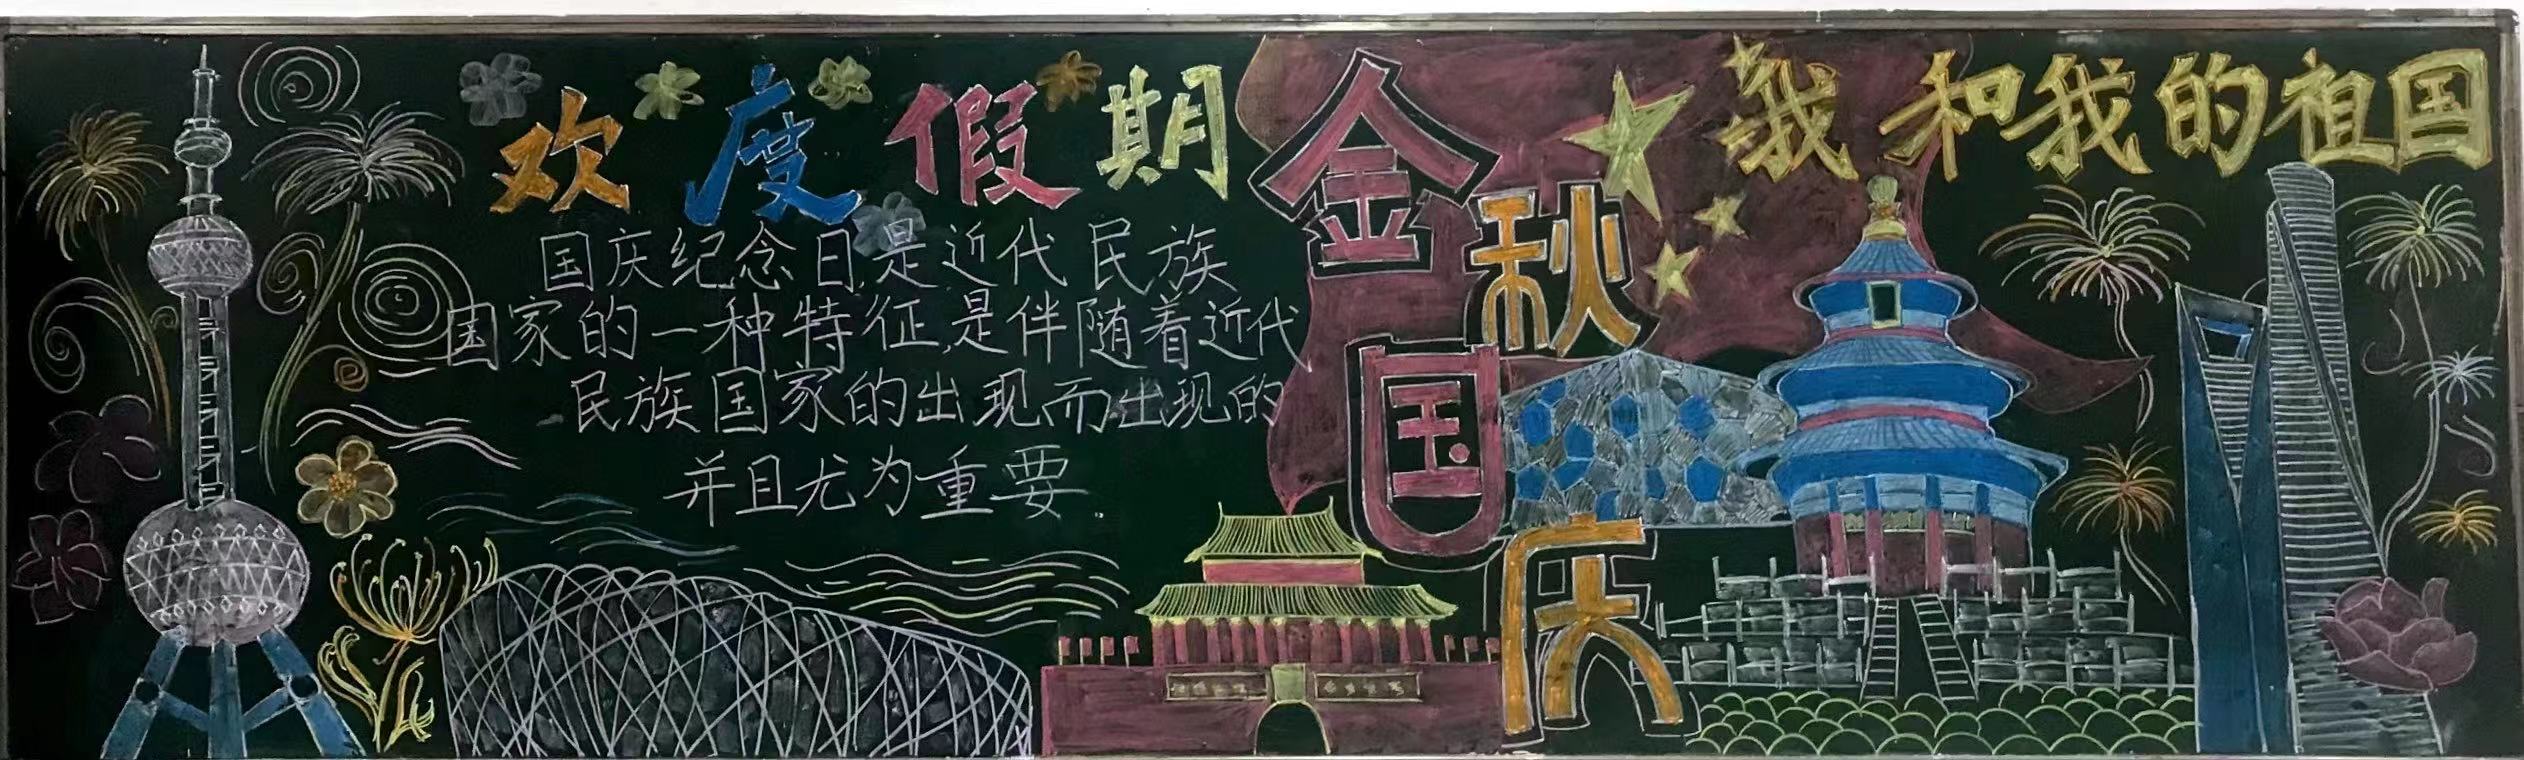 欢度假期
国庆纪念日是近代民族
国家的一种特征,是伴随着近代
民族国家的出现而出现的
并且尤为重要.
金秋国庆
我和我的祖国